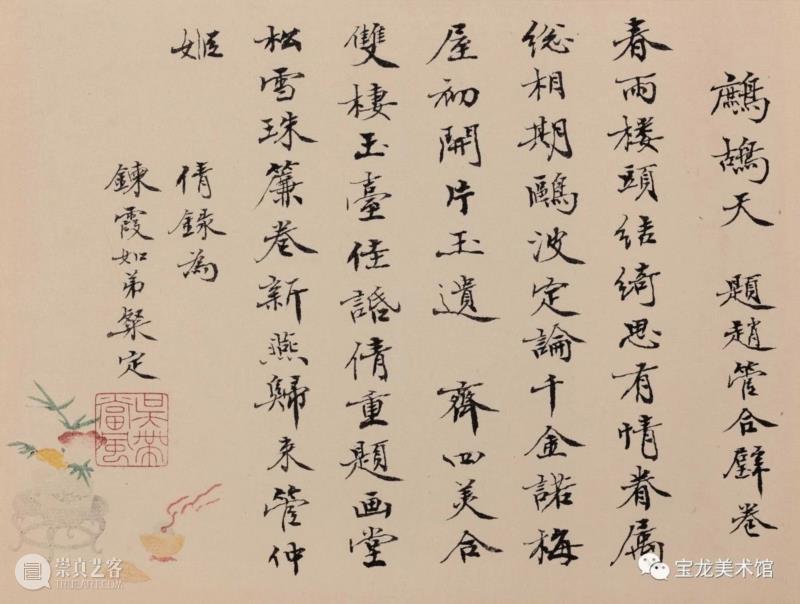 鷓鴣天 題趙管合璧卷
春雨楼頭結綺思有情眷属
總相期鷗波定論千金諾梅
屋初開片玉遺 齊四美合
雙棲玉臺佳話倩重題画堂
松雪珠簾卷新燕歸来管仲
姬
倩錄為
鍊霞如弟粲定
吳帶當風
崇真艺客
宝龙美术馆